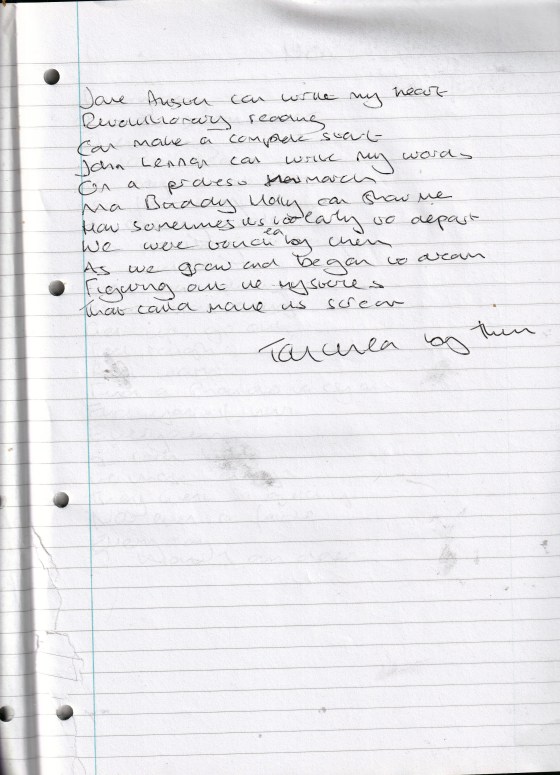 Jane Austen can write my heart
Revolutionary reading
Can make a complete start
John Lennon can write my words
On a protest march
Buddy Holly can show me
How sometimes its too early to depart
We were touched by them
As we grow and began to dream
Figuring out the mysteries
That could make us scream
Touched by them